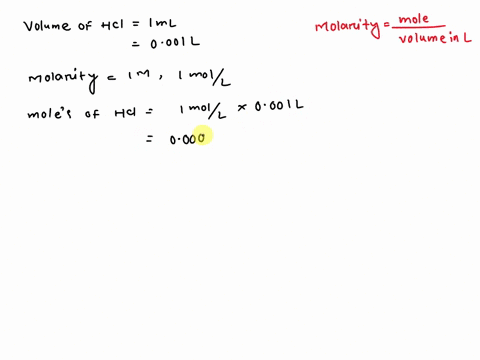 Volume of HCl = 1mL
= 0.001L
Molarity = mole / volume in L
Molarity = 1M, 1 mol/L
mole's of HCl = 1 mol/L × 0.001L
= 0.000